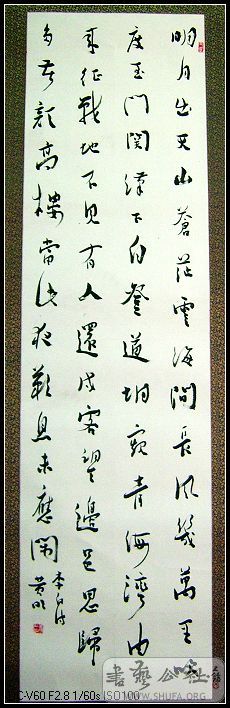 明月出天山蒼茫雲海間長風幾萬里吹
度玉門關漢下白登道胡窺青海灣由
來征戰地不見有人還戍客望邊邑思歸
多苦顏高樓當此夜歎息未應閑
李白詩
書藝公社
WWW.SHUFA.ORG
C-V60 F2.8 1/60s ISO100